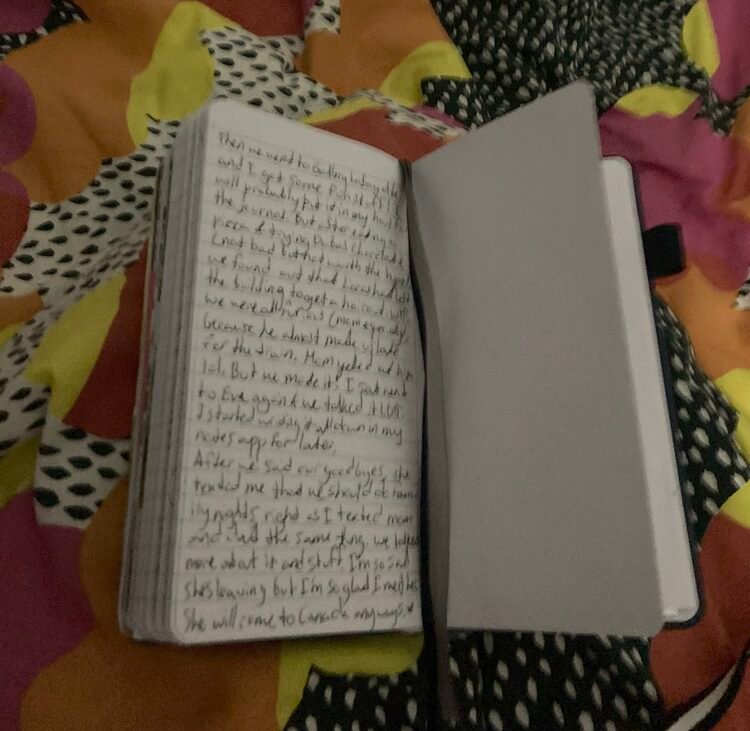 Then we went to
and I got some fun stuff I
will probably put it in my
the journal. But after eating
pizza & trying Dubai chocolate
(not bad but not worth the hype)
we found out that had left
the building to get a
we were all furious (mom especially)
because he almost made us late
for the train. Mom yelled at him
lol. But we made it! I sat next
to Eve again & we talked
I started writing it all down in my
notes app for later.
After we said our goodbyes, she
texted me that we should do
ily nights right as I texted mom
and said the same thing. we talked
more about it and stuff. I'm so sad
she's leaving but I'm so glad I met her.
She will come to Canada anyways.